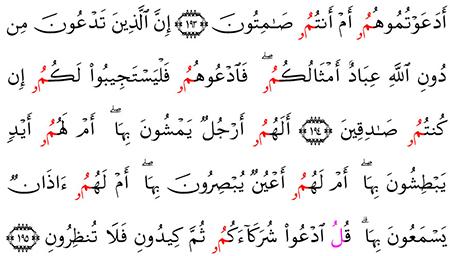 أَدَعَوْتُمُوهُمُۥٓ أَمْ أَنتُمُۥ صَٰمِتُونَ ١٩٣ إِنَّ ٱلَّذِينَ تَدْعُونَ مِن
دُونِ ٱللَّهِ عِبَادٌ أَمْثَالُكُمُۥۖ فَٱدْعُوهُمُۥ فَلْيَسْتَجِيبُوا۟ لَكُمُۥٓ إِن
كُنتُمُۥ صَٰدِقِينَ ١٩٤ أَلَهُمُۥٓ أَرْجُلٌ يَمْشُونَ بِهَاۖ أَمْ لَهُمُۥٓ أَيْدٍ
يَبْطِشُونَ بِهَاۖ أَمْ لَهُمُۥٓ أَعْيُنٌ يُبْصِرُونَ بِهَاۖ أَمْ لَهُمُۥٓ ءَاذَانٌ
يَسْمَعُونَ بِهَاۗ قُلُ ٱدْعُوا۟ شُرَكَآءَكُمُۥ ثُمَّ كِيدُونِ فَلَا تُنظِرُونِ ١٩٥